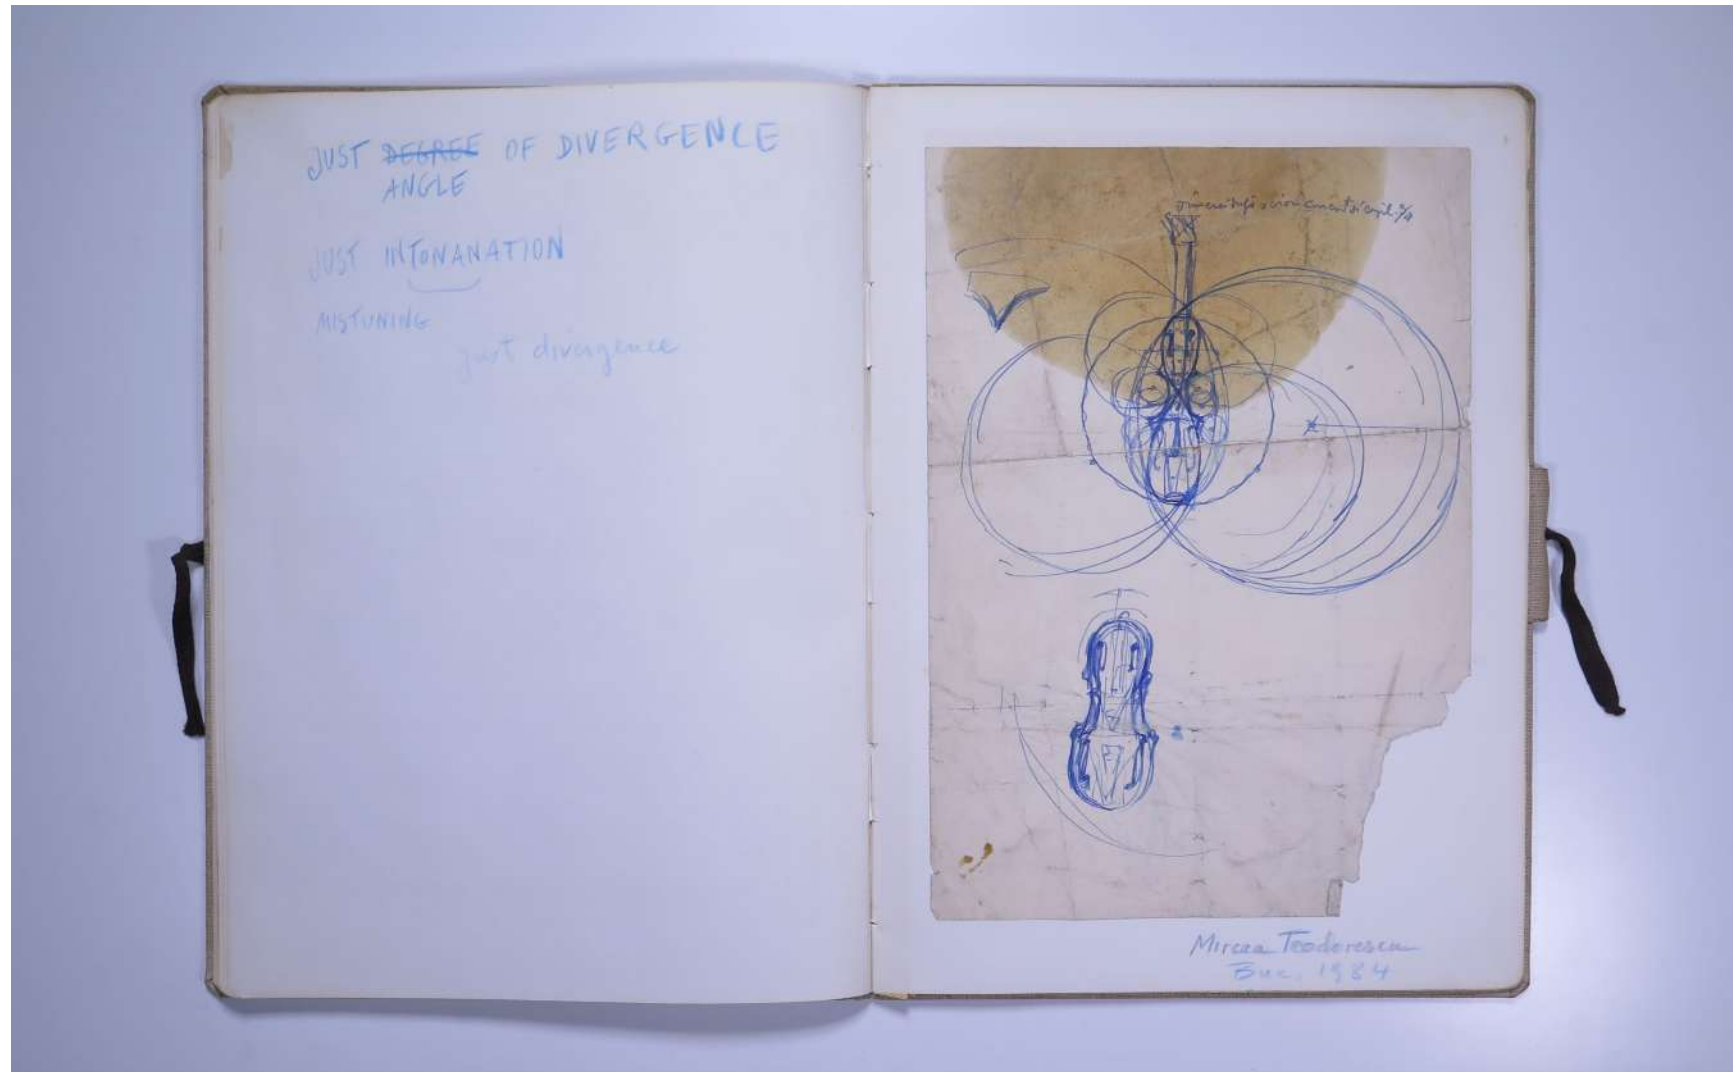 JUST DEGREE OF DIVERGENCE
ANGLE
JUST INTONANATION
MISTUNING
just divergence
Mircea Teodorescu
Buc, 1984